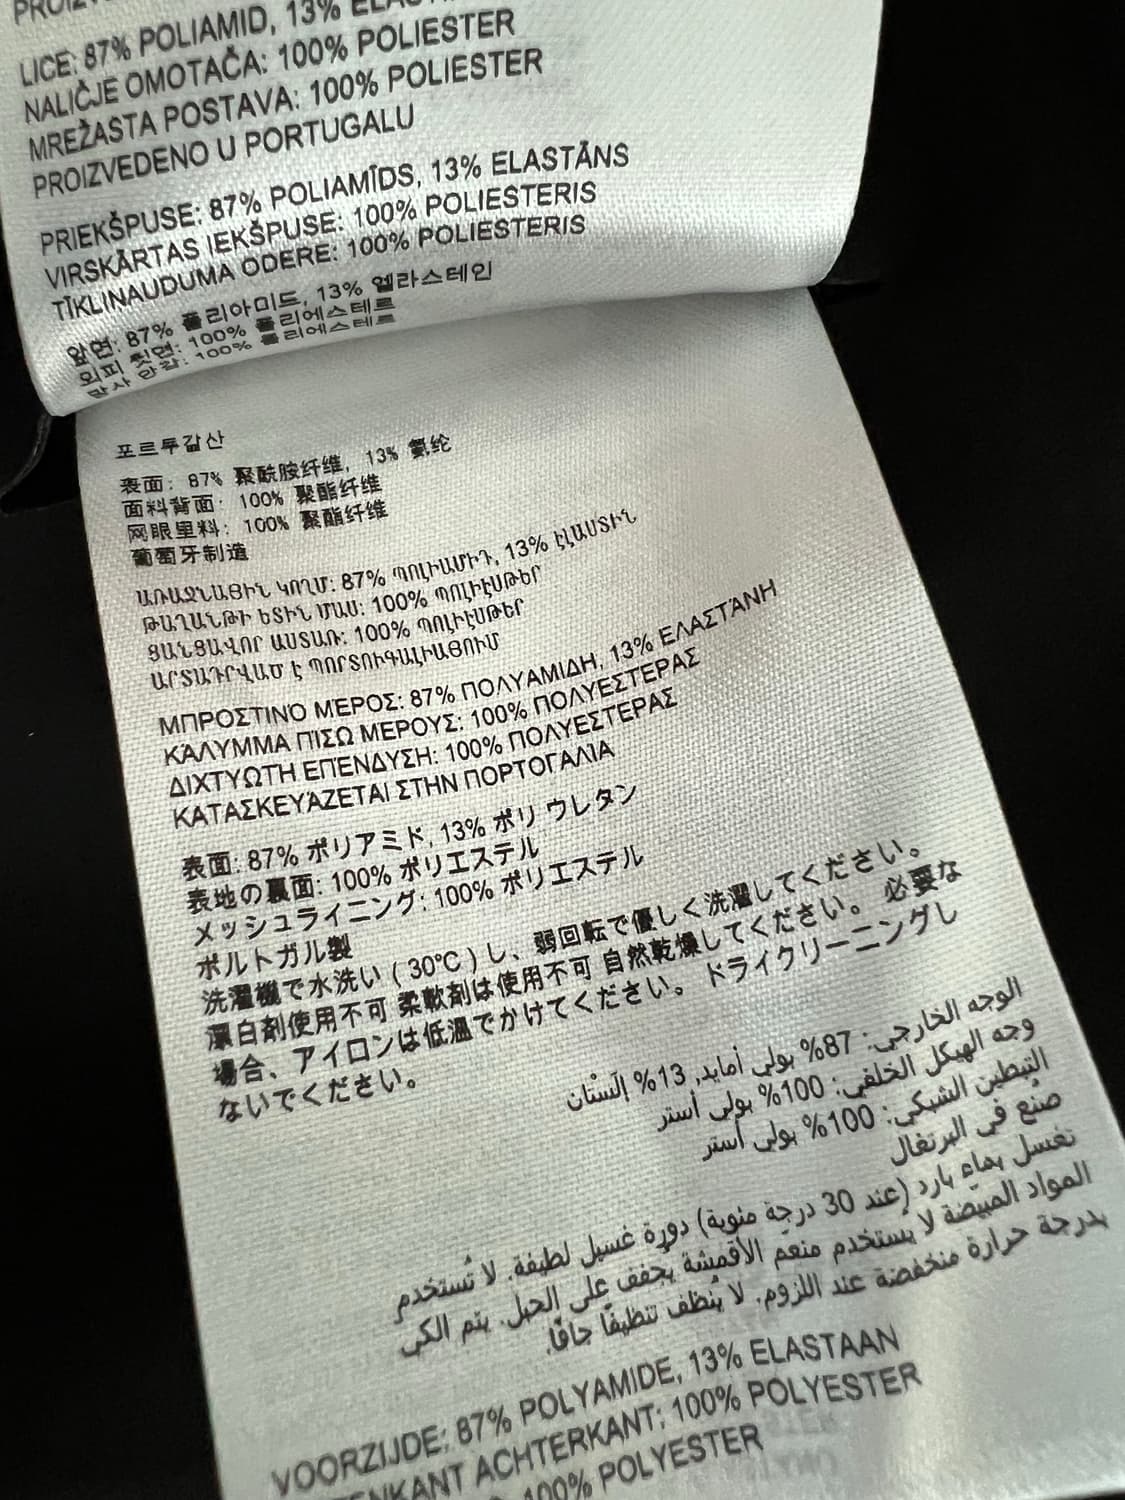 LICE: 87% POLIAMID, 13%
NALIČJE OMOTAČA: 100% POLIESTER
MREŽASTA POSTAVA: 100% POLIESTER
PROIZVEDENO U PORTUGALU
PRIEKŠPUSE: 87% POLIAMĪDS, 13% ELASTĀNS
VIRSKĀRTAS IEKŠPUSE: 100% POLIESTERIS
TĪKLINAUDUMA ODERE: 100% POLIESTERIS
앞면: 87% 폴리아미드, 13% 엘라스테인
외피 뒷면: 100% 폴리에스테르
망사 안감: 100% 폴리에스테르
포르투갈산
表面: 87% 聚酰胺纤维, 13% 氨纶
面料背面: 100% 聚酯纤维
网眼里料: 100% 聚酯纤维
葡萄牙制造
ԱՌԱՋՆԱՅԻՆ ԿՈՂՄ: 87% ՊՈԼԻԱՄԻԴ, 13% ԷԼԱՍՏԻՆ
ԹԱՂԱՆԹԻ ԵՏԻՆ ՄԱՍ: 100% ՊՈԼԻԷՍԹԵՐ
ՑԱՆՑԱՎՈՐ ԱՍՏԱՌ: 100% ՊՈԼԻԷՍԹԵՐ
ԱՐՏԱԴՐՎԱԾ Է ՊՈՐՏՈՒԳԱԼԻԱՅՈՒՄ
ΜΠΡΟΣΤΙΝΌ ΜΈΡΟΣ: 87% ΠΟΛΥΑΜΙΔΗ, 13% ΕΛΑΣΤΆΝΗ
ΚΑΛΥΜΜΑ ΠΙΣΩ ΜΕΡΟΥΣ: 100% ΠΟΛΥΕΣΤΕΡΑΣ
ΔΙΧΤΥΩΤΗ ΕΠΈΝΔΥΣΗ: 100% ΠΟΛΥΕΣΤΕΡΑΣ
ΚΑΤΑΣΚΕΥΆΖΕΤΑΙ ΣΤΗΝ ΠΟΡΤΟΓΑΛΊΑ
表面: 87% ポリアミド, 13% ポリ ウレタン
表地の裏面: 100% ポリエステル
メッシュライニング: 100% ポリエステル
ポルトガル製
洗濯機で水洗い ( 30℃ ) し、弱回転で優しく洗濯してください。
漂白剤使用不可 柔軟剤は使用不可 自然乾燥してください。 必要な
場合、アイロンは低温でかけてください。 ドライクリーニングし
ないでください。
الوجه الخارجي: 87% بولي أمايد, 13% إلَستَان
وجه الهيكل الخلفي: 100% بولي أستر
التبطين الشبكي: 100% بولي أستر
صُنع في البرتغال
تغسل بماءٍ بارد (عند 30 درجة مئوية) دورة غسيل لطيفة. لا تُستخدم
المواد المبيّضة لا يُستخدم منعم الأقمشة يُجفف على الحبل. يتم الكي
بدرجة حرارة منخفضة عند اللزوم. لا يُنظف تنظيفًا جافًا.
VOORZIJDE: 87% POLYAMIDE, 13% ELASTAAN
ACHTERKANT: 100% POLYESTER
100% POLYESTER